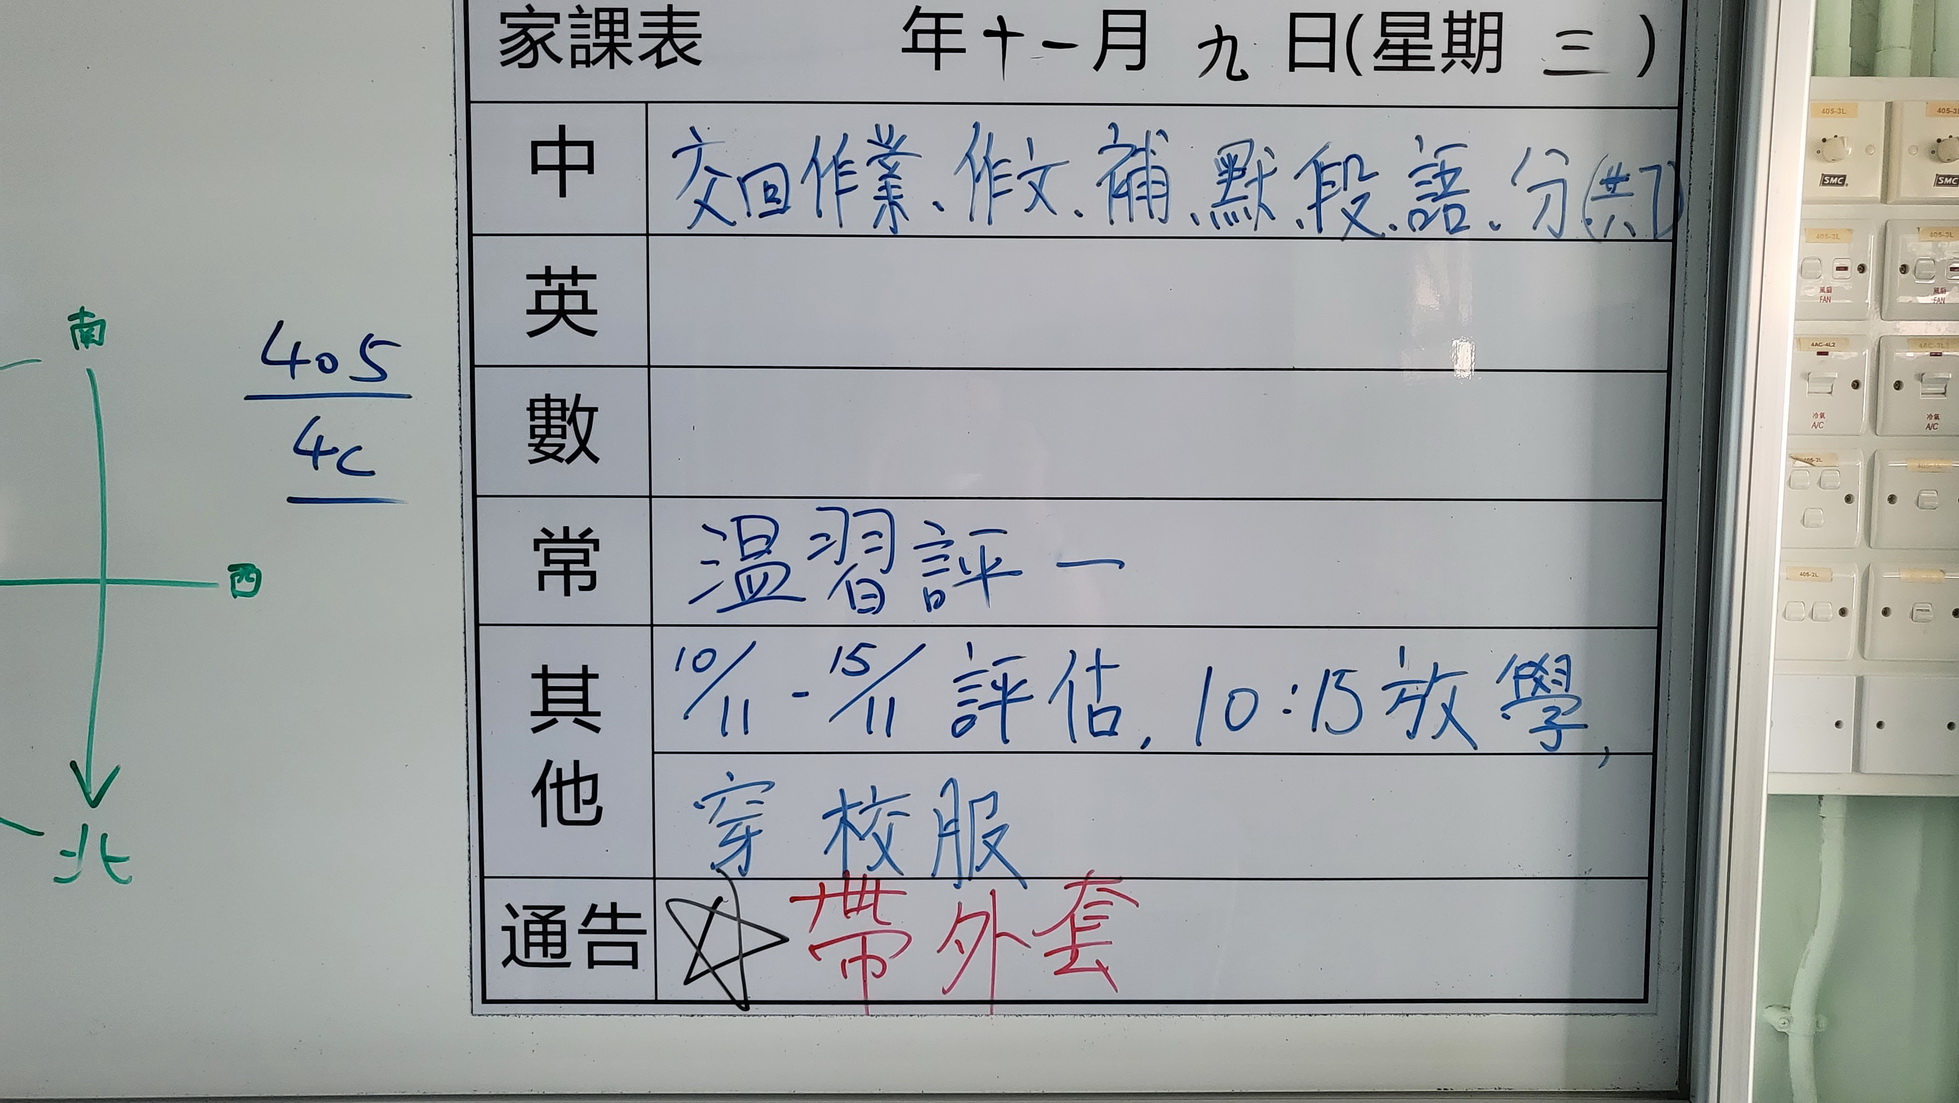 家課表 年十一月九日(星期三)
中 交回作業、作文、補、默、段、語、分(共7
英
數
常 溫習評一
其他 10/11-15/11評估,10:15放學,
穿校服
通告 ☆帶外套
南
西
北
405
4C
405-3L
405-3L
SMC
SMC
405-3L
405-3L
風扇
FAN
風扇
FAN
4AC-4L2
冷氣
A/C
冷氣
A/C
405-2L